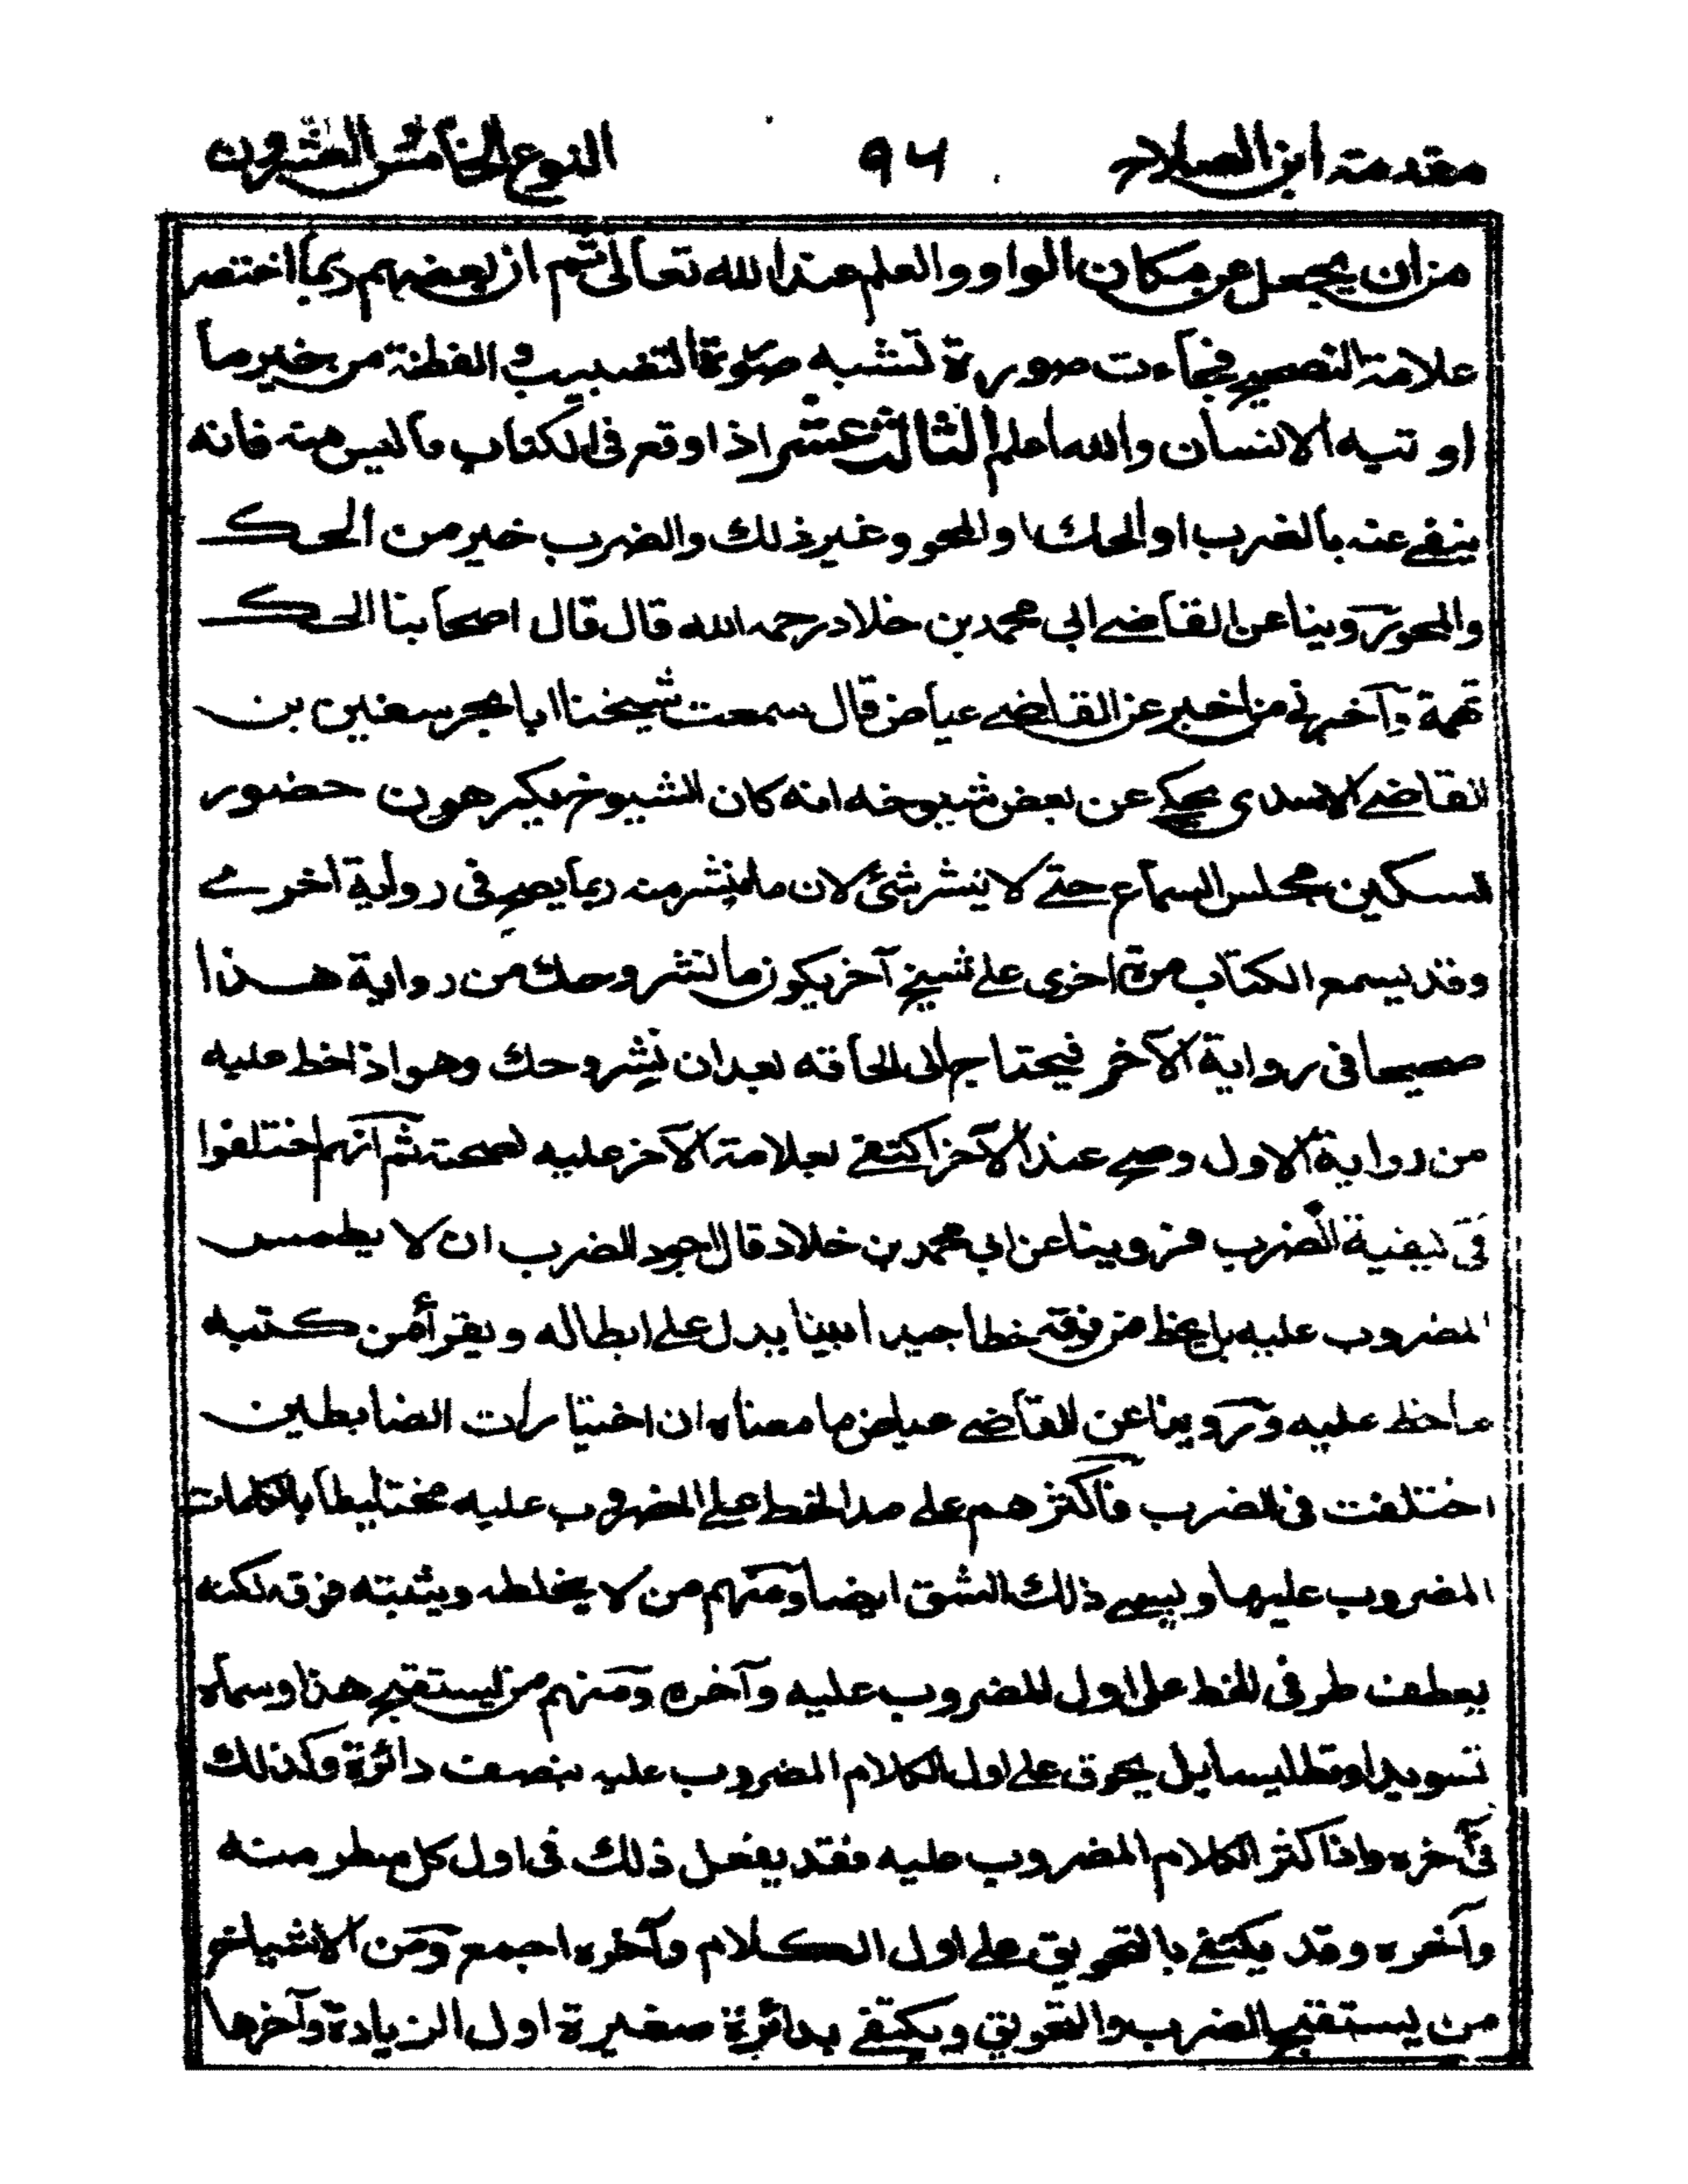 مقدمة ابن الصلاح ٩٤ النوع الخامس العشرون
من ان يجعل عن مكان الواو والعلم عند الله تعالى ثم ان بعضهم ربما اختصر
علامة التصحيح فجاءت صورة تشبه صورة التضبيب والفطنة من خير ما
اوتيه الانسان والله اعلم الثالث عشر اذا وقع فى الكتاب ما ليس منه فانه
ينفے عنه بالضرب او الحك او المحو وغير ذلك والضرب خير من الحك
والمحو روينا عن القاضے ابي محمد بن خلاد رحمه الله قال قال اصحابنا الحك
تهمة وآخبرني من اخبر عن القاضے عياض قال سمعت شيخنا ابا بحر سفين بن
القاضے الاسدى يحكے عن بعض شيوخه انه كان الشيوخ يكرهون حضور
السكين مجلس السماع حتے لا ينشر شئ لان ما ينشر منه ربما يصح فى رواية اخرے
وقد يسمع الكتاب مرة اخرى علے شيخ آخر يكون ما نشر وحك من رواية هذا
صحيحا فى رواية الآخر فيحتاج الى الحاقه بعد ان نشر وحك وهو اذا خط عليه
من رواية الاول وصح عند الآخر اكتفے بعلامة الآخر عليه لصحته ثم انهم اختلفوا
فى كيفية الضرب فروينا عن ابي محمد بن خلاد قال اجود الضرب ان لا يطمس
المضروب عليه بل يخط من فوقه خطا جيدا بينا يدل علے ابطاله ويقرأ من كتبه
ما خط عليه وروينا عن القاضے عياض ما معناه ان اختيارات الضابطين
اختلفت فى الضرب فاكثرهم علے مد الخط علے المضروب عليه مختليطا بالكلمات
المضروب عليها ويسمے ذلك الشق ايضا ومنهم من لا يخلطه ويثبته فوقه لكنه
يعطف طرفى الخط على اول المضروب عليه وآخره ومنهم من يستقبح هذا وسماه
تسويدا وتطليسا بل يحوق علے اول الكلام المضروب عليه بنصف دائرة وكذلك
فى آخره واذا كثر الكلام المضروب عليه فقد يفعل ذلك فى اول كل سطر منه
وآخره وقد يكتفے بالتحويق علے اول الكلام وآخره اجمع ومن الاشياخ
من يستقبح الضرب والتحويق ويكتفے بدائرة صغيرة اول الزيادة وآخرها